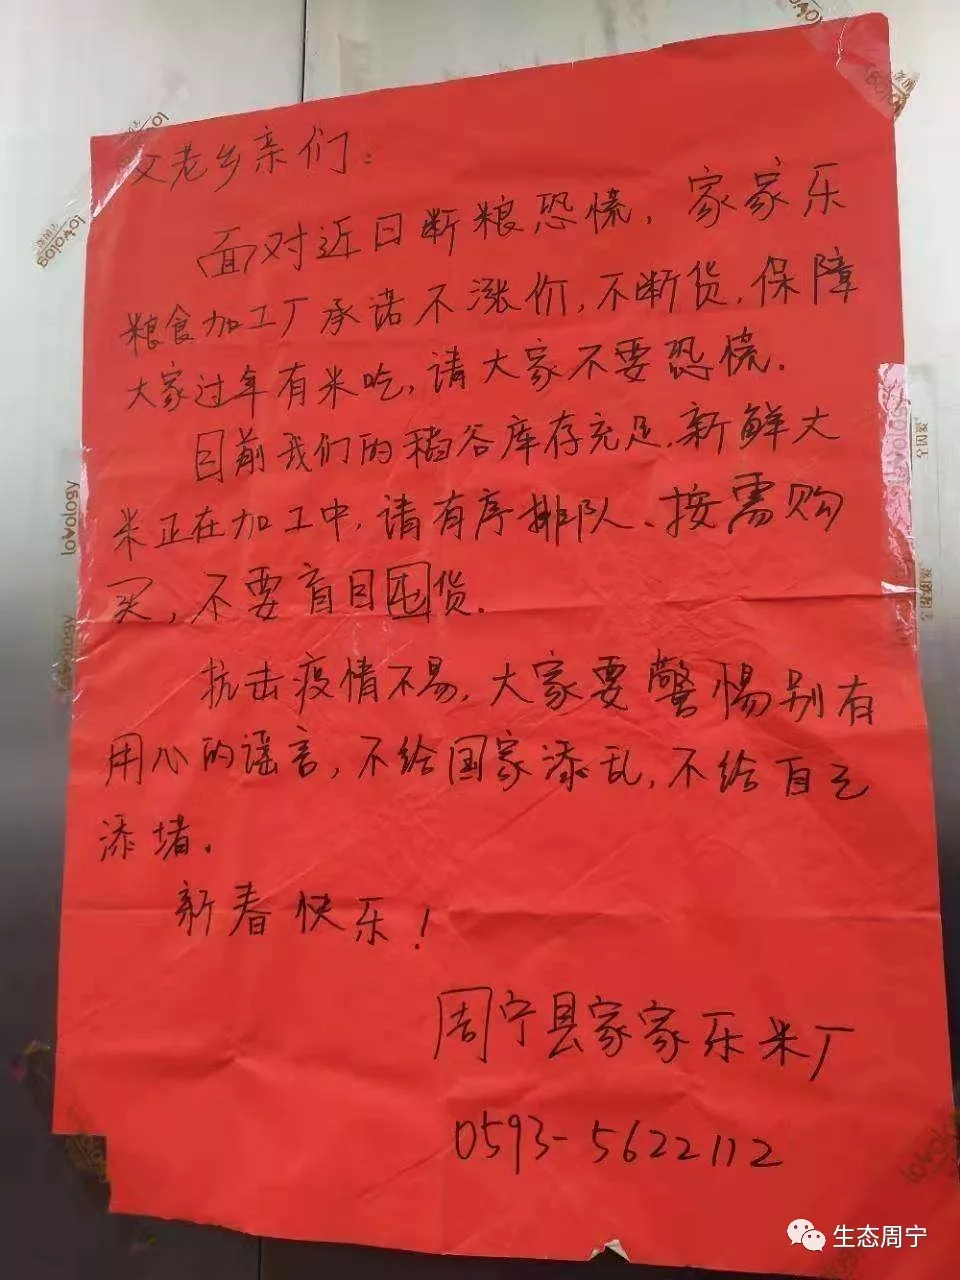 父老乡亲们：
面对近日断粮恐慌，家家乐
粮食加工厂承诺不涨价，不断货，保障
大家过年有米吃，请大家不要恐慌.
目前我们的稻谷库存充足，新鲜大
米正在加工中，请有序排队、按需购
买，不要盲目囤货.
抗击疫情不易，大家要警惕别有
用心的谣言，不给国家添乱，不给自己
添堵.
新春快乐！
周宁县家家乐米厂
0593-5622112
lovology
lovology
生态周宁